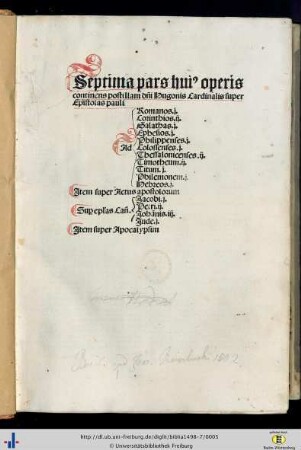 Septima pars huiꝰ operis
continens postillam dñi Hugonis Cardinalis super
Epistolas pauli
Ad
Romanos.j.
Corinthios.ij.
Galathas.j.
Ephesios.j.
Philippenses.j.
Colossenses.j.
Thessalonicenses.ij.
Timotheum.ij.
Titum.j.
Philemonem.j.
Hebreos.j.
Item super Actus apostolorum
Sup epl̃as Cañ.
Jacobi.j.
Pe.ij.
Johãnis.iij.
Jude.j.
Item super Apocalypsim
http://dl.ub.uni-freiburg.de/diglit/biblia1498-7/0005
© Universitätsbibliothek Freiburg
Baden-Württemberg